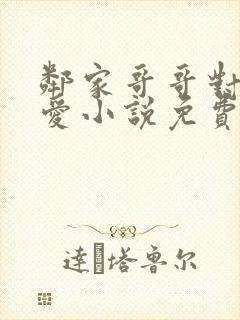 鄰家哥哥對
愛小說免費
達 塔鲁尔